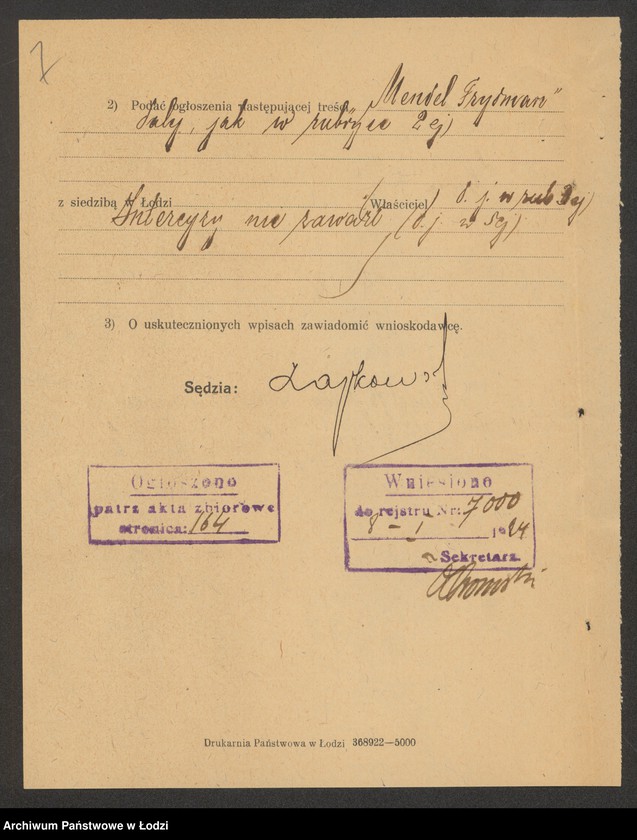 7
2) Podać ogłoszenia następującej treści „Mendel Frydman"
dalej, jak w rubryce 2ej)
z siedzibą w Łodzi Właściciel d. j. w rub 3ej)
Intercyzy nie zawarł (d. j. w 5ej)
3) O uskutecznionych wpisach zawiadomić wnioskodawcę.
Sędzia:
Ogłoszono
patrz akta zbiorowe
stronica: 164
Wniesiono
do rejstru Nr: 7000
8 - I 1924
Sekretarz
Drukarnia Państwowa w Łodzi 368922—5000
Archiwum Państwowe w Łodzi